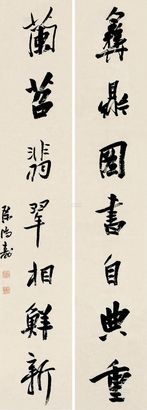 彝鼎圖書自典重
蘭苕翡翠相鮮新
陳鴻壽